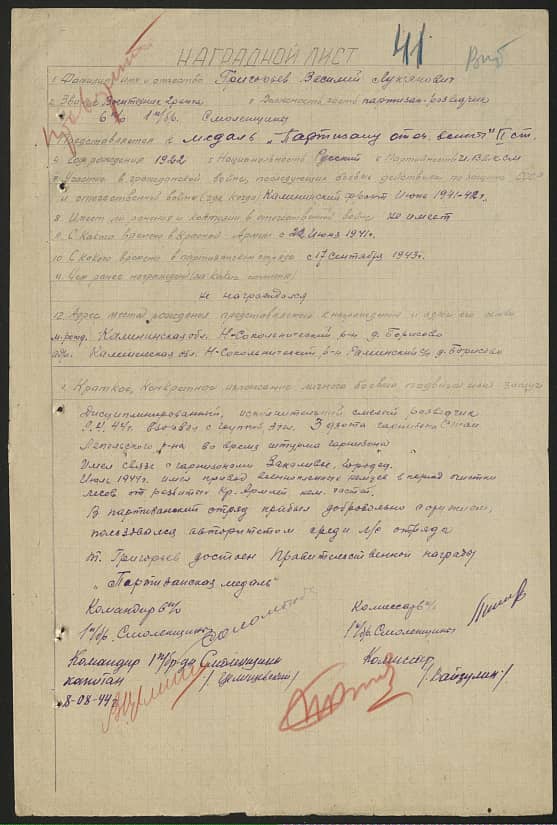 41
НАГРАДНОЙ ЛИСТ
1. Фамилия имя и отчество Григорьев Василий Лукянович
2. Звание 3. Должность часть партизан-разведчик
6 п/о 1 п/бр. Смоленщины
Представляется к медаль „Партизану отеч. войны" II ст.
4. Год рождения 1922 5. Национальность Русский 6. Партийность
7. Участие в гражданской войне, последующих боевых действиях по защите СССР
и отечественной войне (где когда) Калининский фронт Июнь 1941-42г.
8. Имеет ли ранения и контузии в отечественной войне не имеет
9. С какого времени в Красной Армии с 22 июня 1941г.
10. С какого времени в партизанском отряде с 17 сентября 1943г.
11. Чем ранее награжден (за какие отличия)
не награждался
12. Адрес места рождения представляемого к награждению и адрес его семьи
м. рожд. Калининская обл. Н-Сокольнический р-н д. Борисово
адр. Калининская обл. Н-Сокольнический р-н с/с д. Борисово
Краткое, конкретное изложение личного боевого подвига или заслуг
Дисциплинированный, исполнительный, смелый разведчик
9.4.44г. с группой 3 дзота гарнизона
Лепельского р-на во время штурма гарнизона
Имел связь с гарнизонами
Июль 1944г. имел привод военнопленных немцев в период очистки
лесов от разбитых Кр. Армией нем. частей.
В партизанский отряд прибыл добровольно с оружием,
пользовался авторитетом среди л/с отряда
т. Григорьев достоин Правительственной награды
„Партизанская медаль"
Командир 6 п/о Комиссар 6 п/о
1 п/бр. Смоленщины 1 п/бр. Смоленщины
Командир 1 п/бр-ды Смоленщины Комиссар
капитан
8-08-44г.